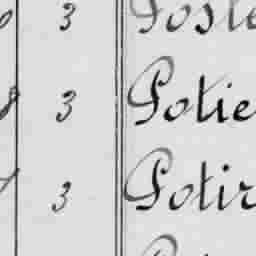 3 Poste
8 3 Potie
3 Potir